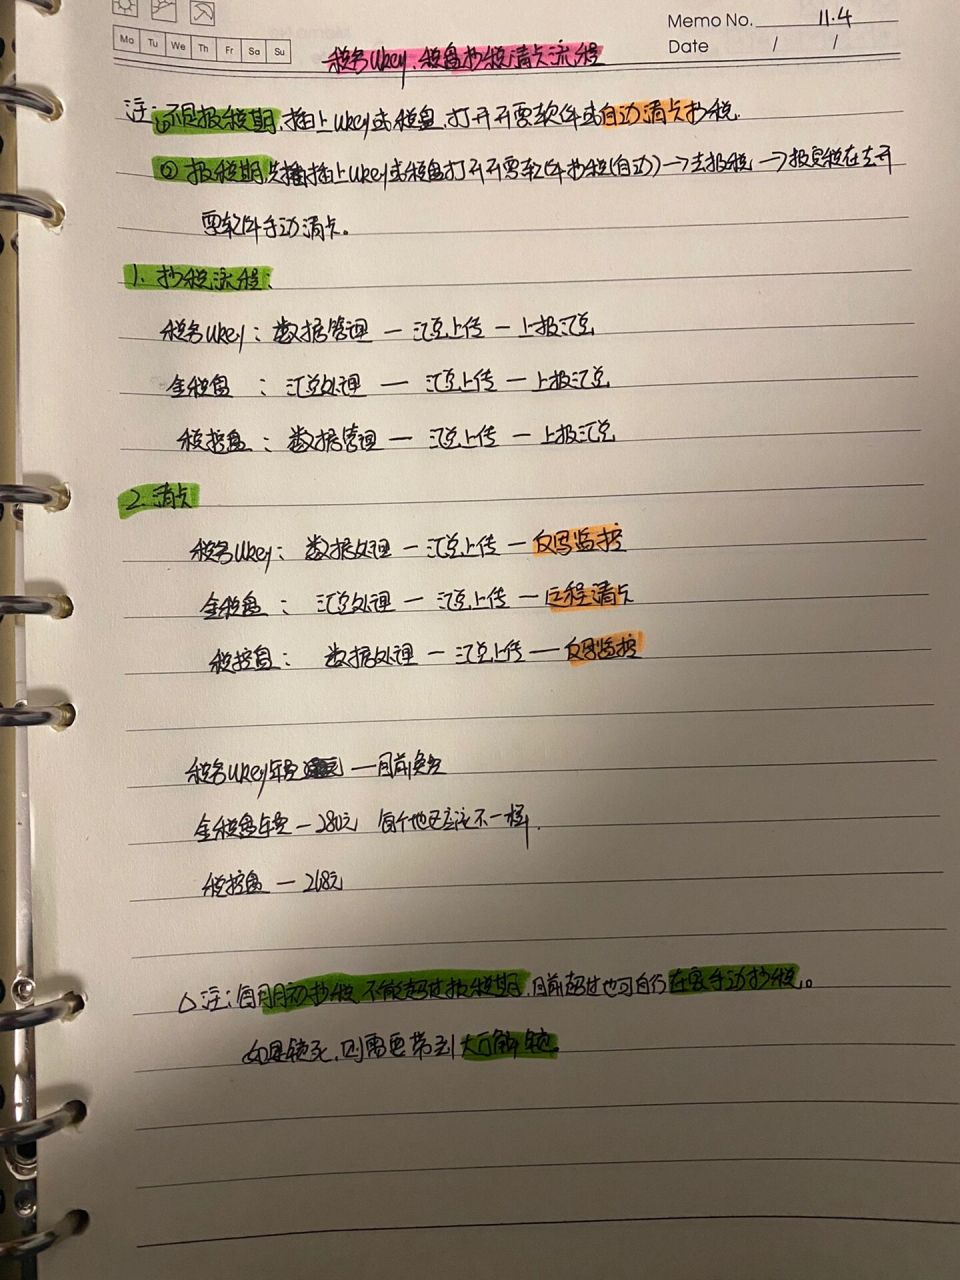 Memo No. 11.4
Mo Tu We Th Fr Sa Su
Date / /
税务Ukey、税盘抄税清卡流程
注:①不是报税期,插上Ukey或税盘,打开开票软件或自动清卡抄税.
②报税期先插上Ukey或税盘打开开票软件抄税(自动)→去报税→报完税在去开
票软件手动清卡。
1. 抄税流程:
税务Ukey: 数据管理 — 汇总上传 — 上报汇总
金税盘 : 汇总处理 — 汇总上传 — 上报汇总
税控盘: 数据管理 — 汇总上传 — 上报汇总
2. 清卡
税务Ukey: 数据处理 — 汇总上传 — 反写监控
金税盘 : 汇总处理 — 汇总上传 — 远程清卡
税控盘: 数据处理 — 汇总上传 — 反写监控
税务Ukey年费 — 目前免费
金税盘年费 — 280元 每个地区应该不一样.
税控盘 — 268元
△注: 每月月初抄税,不能超过报税期,目前超过也可自行在家手动抄税。
如果锁死,则需要带到大厅解锁.